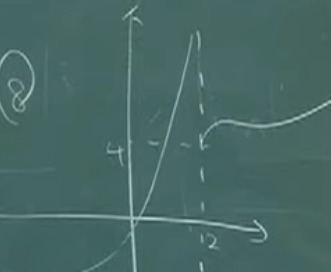 8
4
2